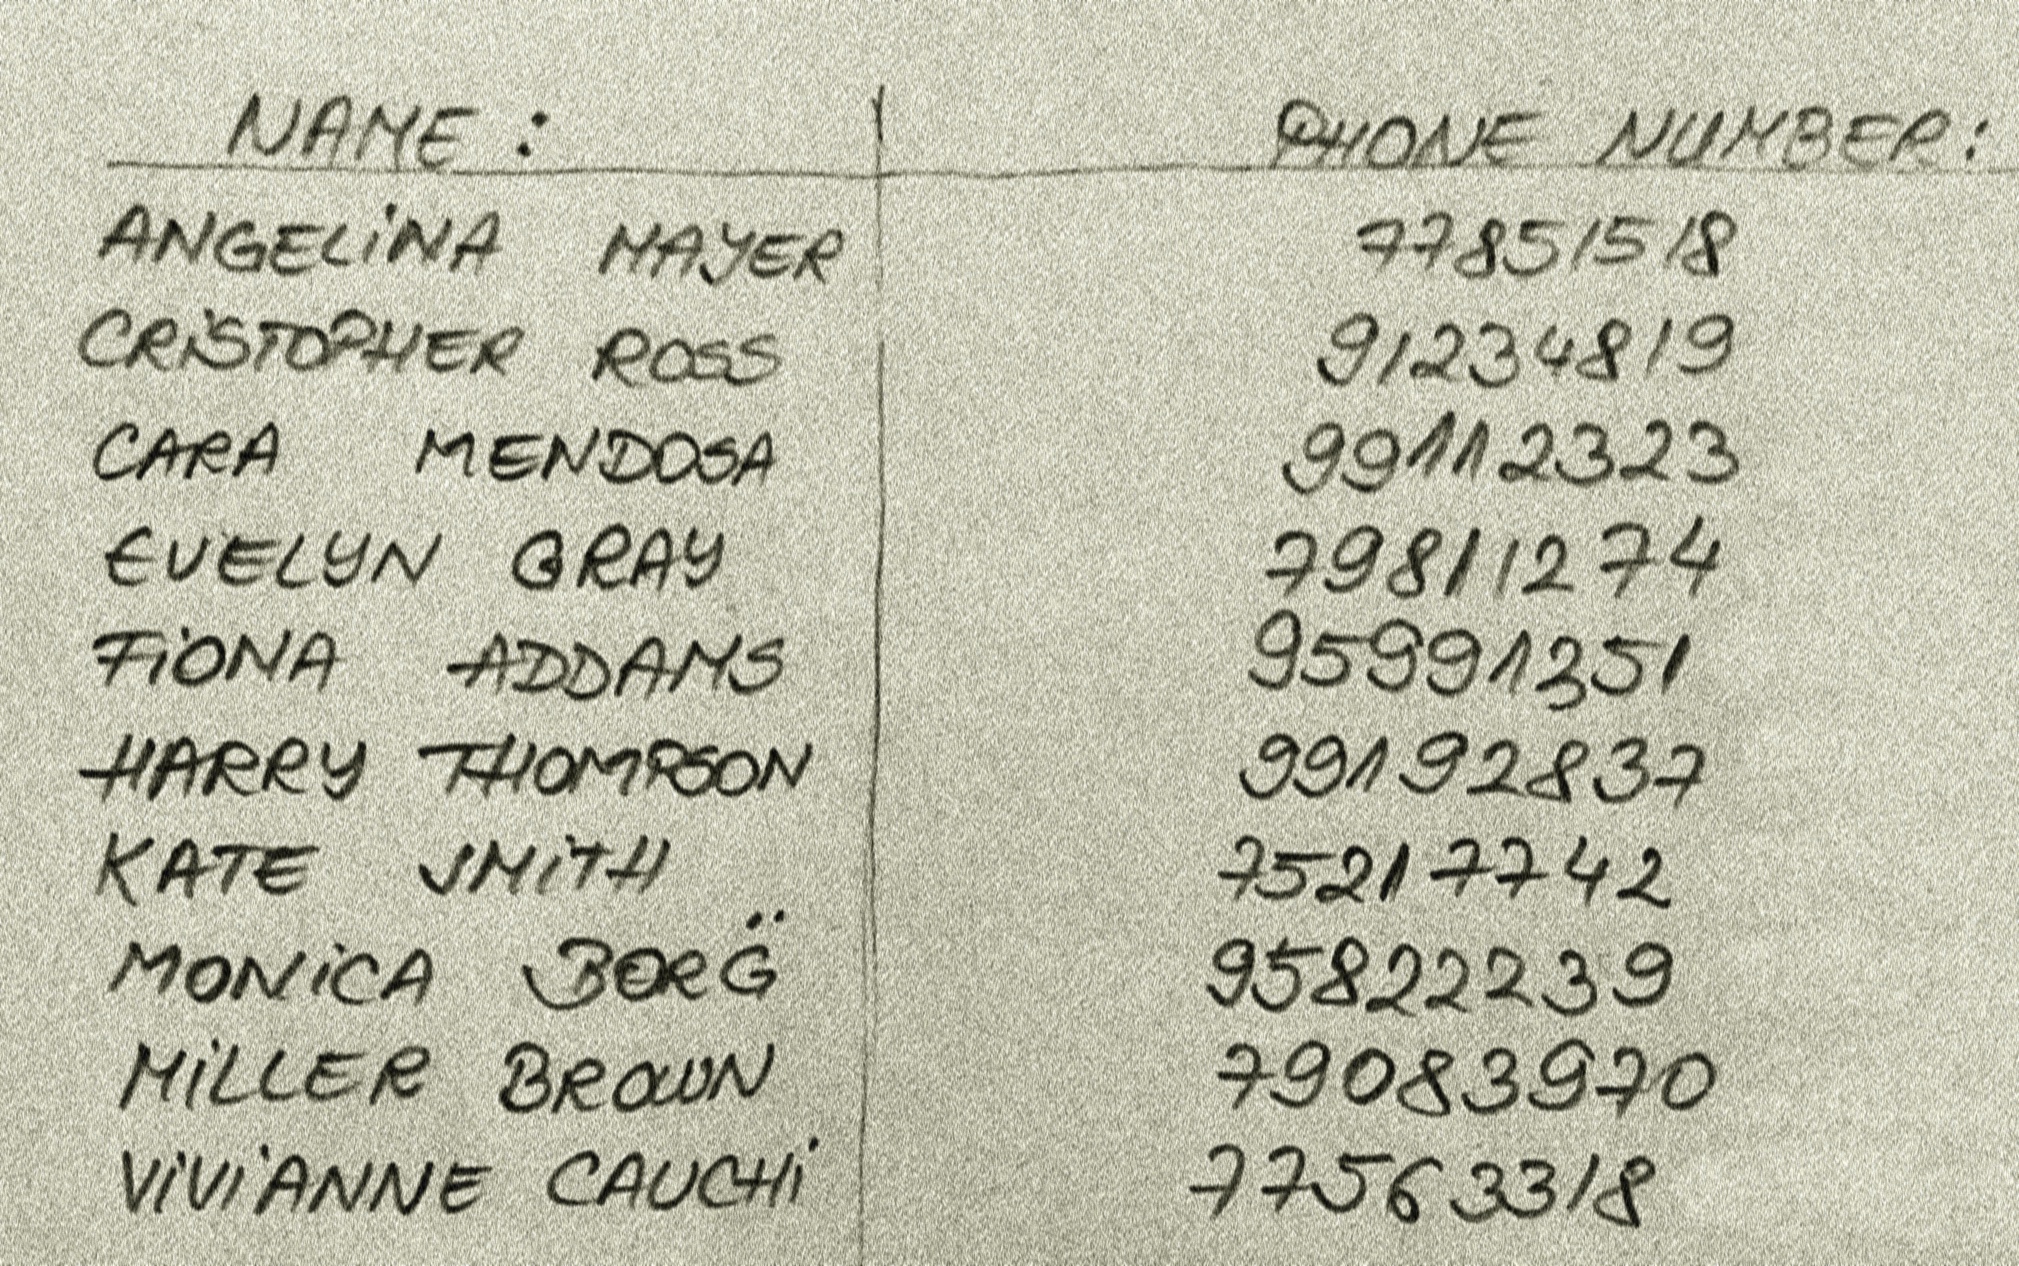 NAME: PHONE NUMBER:
ANGELINA MAYER 77851518
CRISTOPHER ROSS 91234819
CARA MENDOSA 99112323
EVELYN GRAY 79811274
FIONA ADDAMS 95991351
HARRY THOMPSON 99192837
KATE SMITH 75217742
MONICA BORG̈ 95822239
MILLER BROWN 79083970
VIVIANNE CAUCHI 77563318